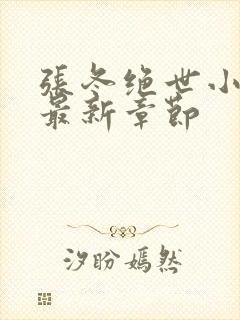 張冬绝世小
最新章節
汐盼嫣然